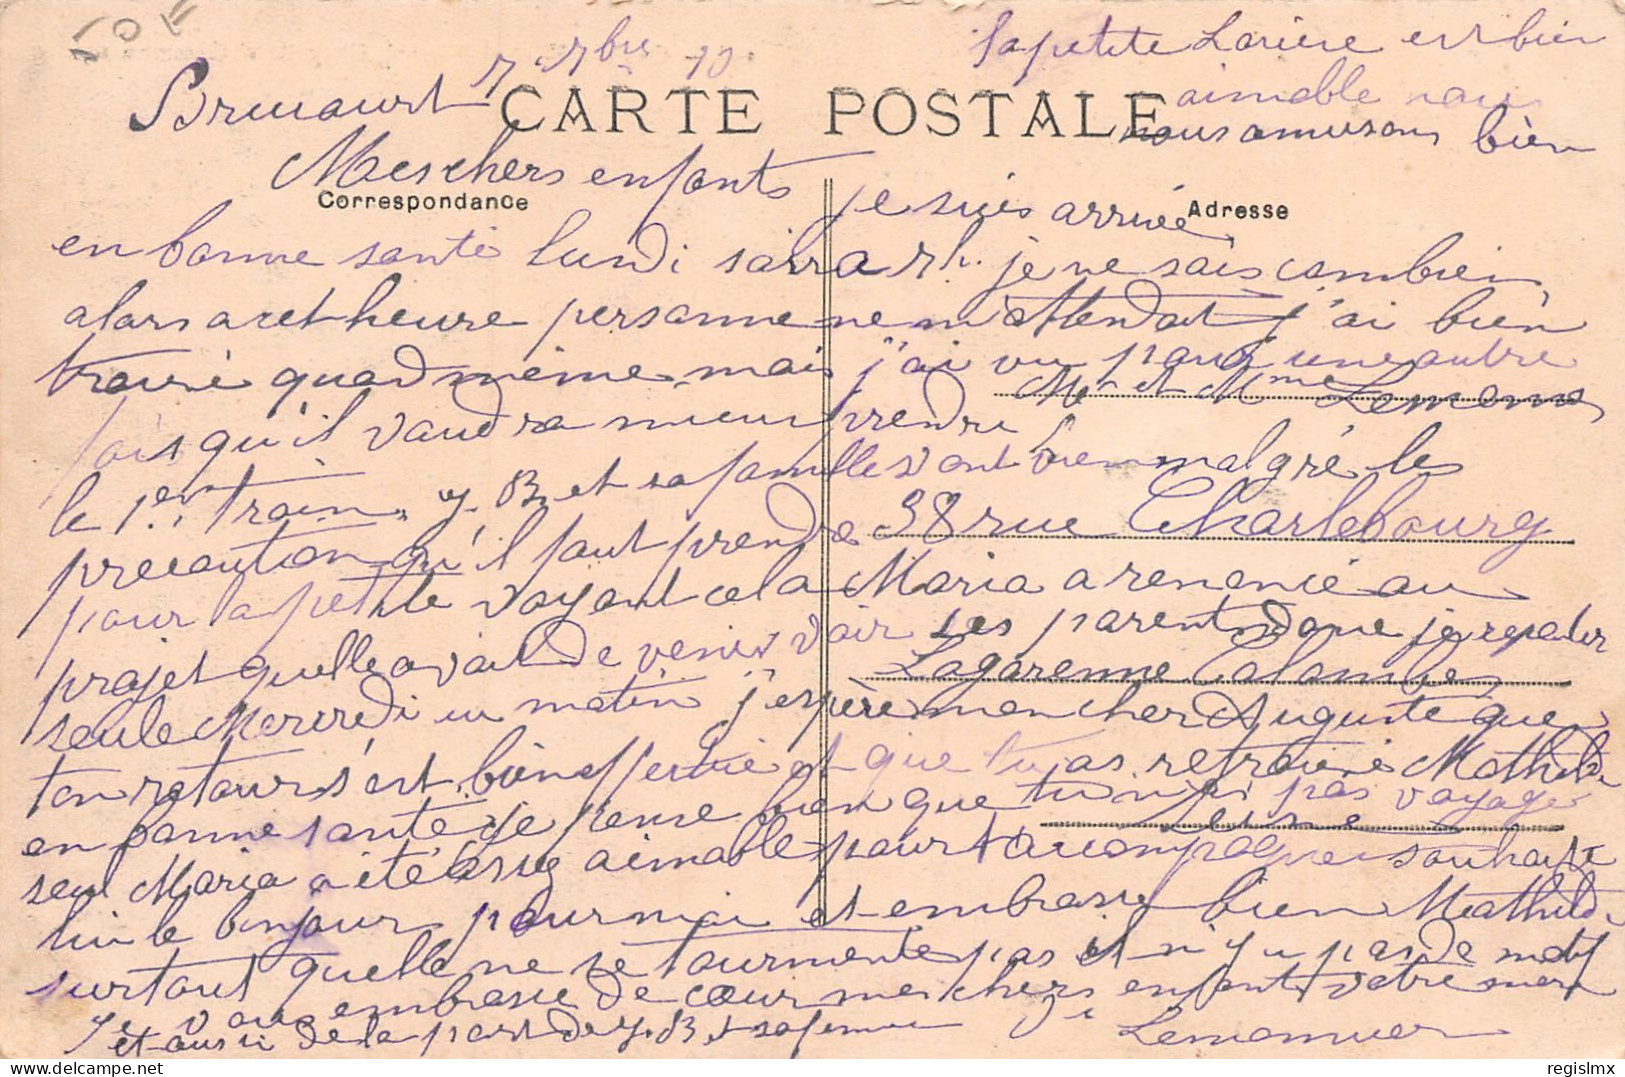 la petite Lariere est bien
aimable nous
nous amusons bien
7 7bre 10
CARTE POSTALE
Mes chers enfants je suis arrivée
Correspondance
Adresse
en bonne santé lundi soir a 7h. je ne sais combien
alors a cet heure personne ne m'attendait j'ai bien
trouvé quad même mais j'ai vu pour une autre
Mr et Mme Lemonn
fois qu'il vaudra mieux prendre
le 1er train. J. B. et sa famille vont bien malgré les
précaution qu'il faut prendre
38 rue Charlebourg
pour la petite voyant cela Maria a renoncé au
projet quelle avait de venir voir ses parent donc je repartir
Lagarenne Colombe
seule Mercredi au matin j'espère mon cher Auguste que
ton retour s'est bien effectué et que tu as retrouvé Mathilde
en bonne santé je pense bien que tu n'as pas voyager
Seine
seul Maria a été assez aimable pour t'accompagner souhaite
lui le bonjour pour moi et embrasse bien Mathilde
surtout quelle ne se tourmente pas il n'y a pas de motif
Je vous embrasse de cœur mes chers enfants votre mère
et aussi de la part de J. B. et sa femme
regislmx